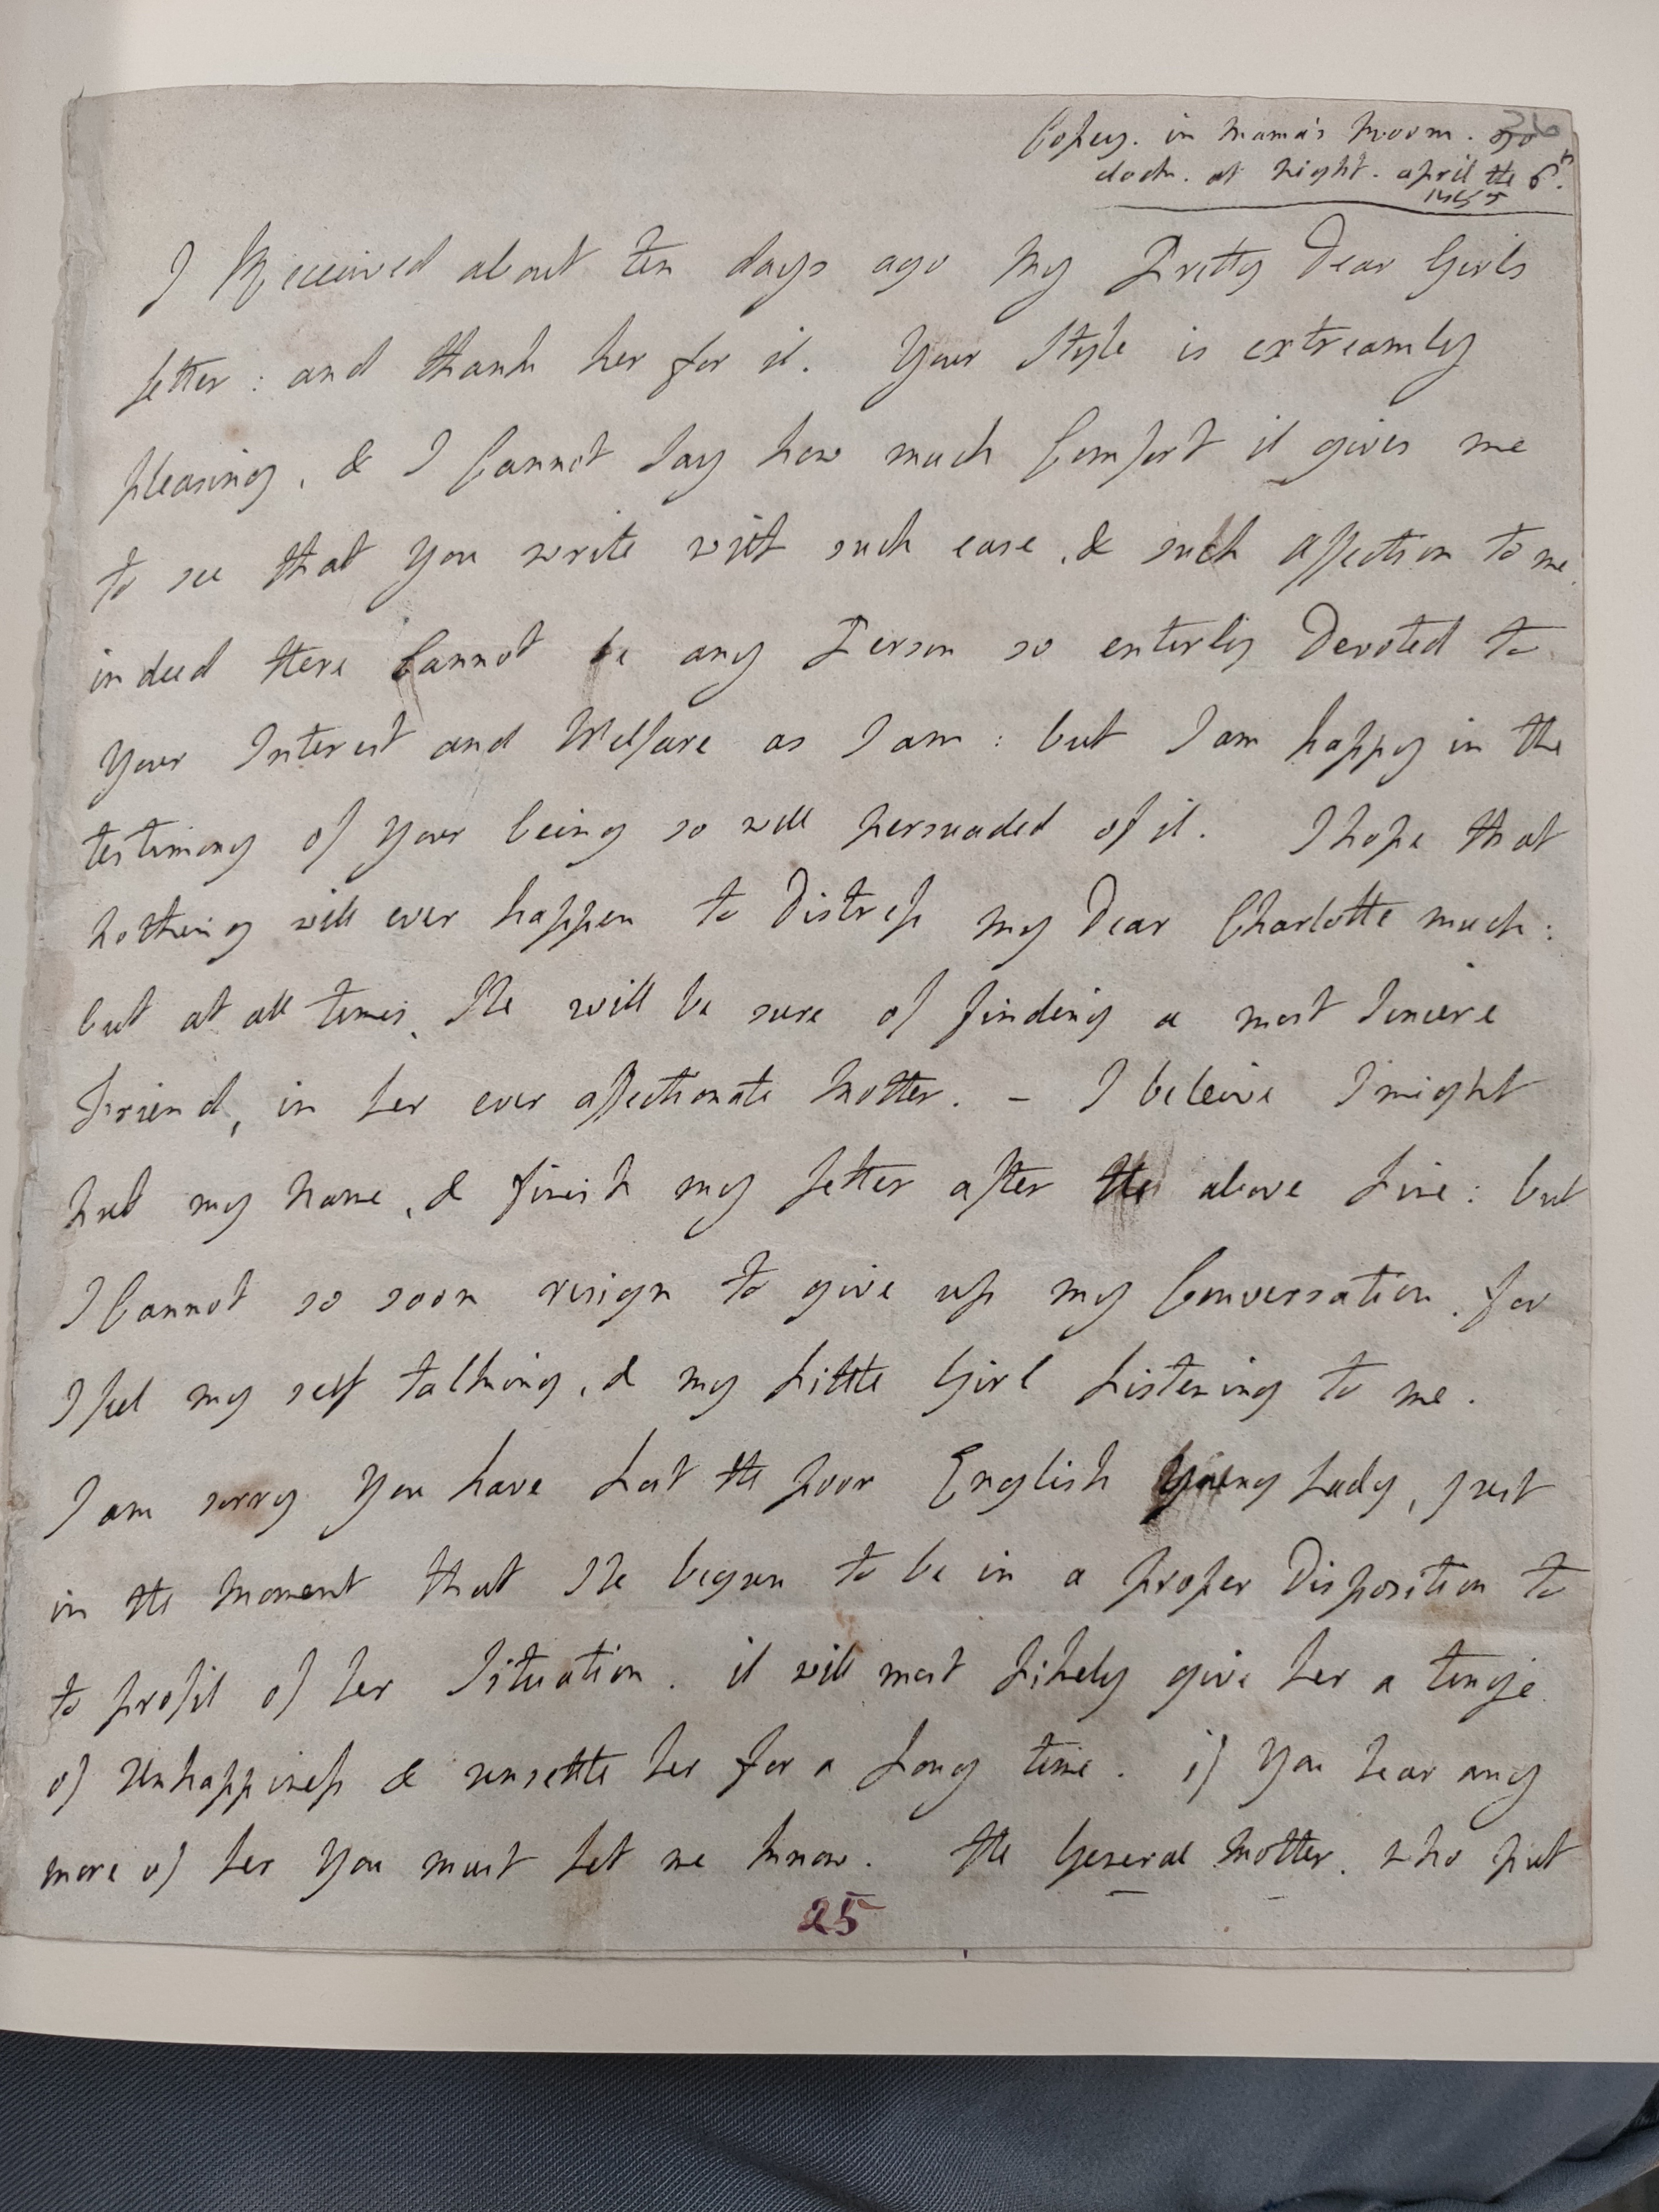 Copey. in Mama's Room.
clock. at Night. april the 6th.
I Received about ten days ago My Pretty Dear Girls
Letter: and thank her for it. Your Style is extreamly
pleasing, & I Cannot Say how much Comfort it gives me
to see that you write with such ease, & such affection to me.
indeed there Cannot be any Person so enterly Devoted to
Your Interest and Welfare as I am: but I am happy in the
testimony of your being so well persuaded of it. I hope that
Nothing will ever happen to Distress my Dear Charlotte much:
but at all times, She will be sure of finding a most Sincere
Friend, in her ever affectionate Mother. – I beleive I might
put my Name, & finish my Letter after the above Line: but
I Cannot so soon resign to give up my Conversation, for
I feel my self talking, & my Little Girl Listening to me.
I am sorry you have Lost the poor English Young Lady, just
in the Moment that She began to be in a proper Disposition to
to profit of her Situation. it will most Likely give her a tinge
of Unhappiness & unsettle her for a Long time. if You hear any
more of her You must Let me know. The General Mother, who put
25